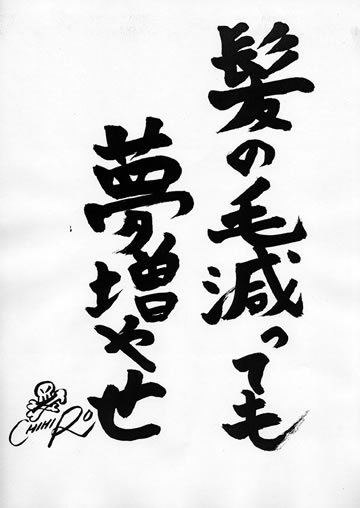 髪の毛減っても
夢増やせ
CHIHIRO